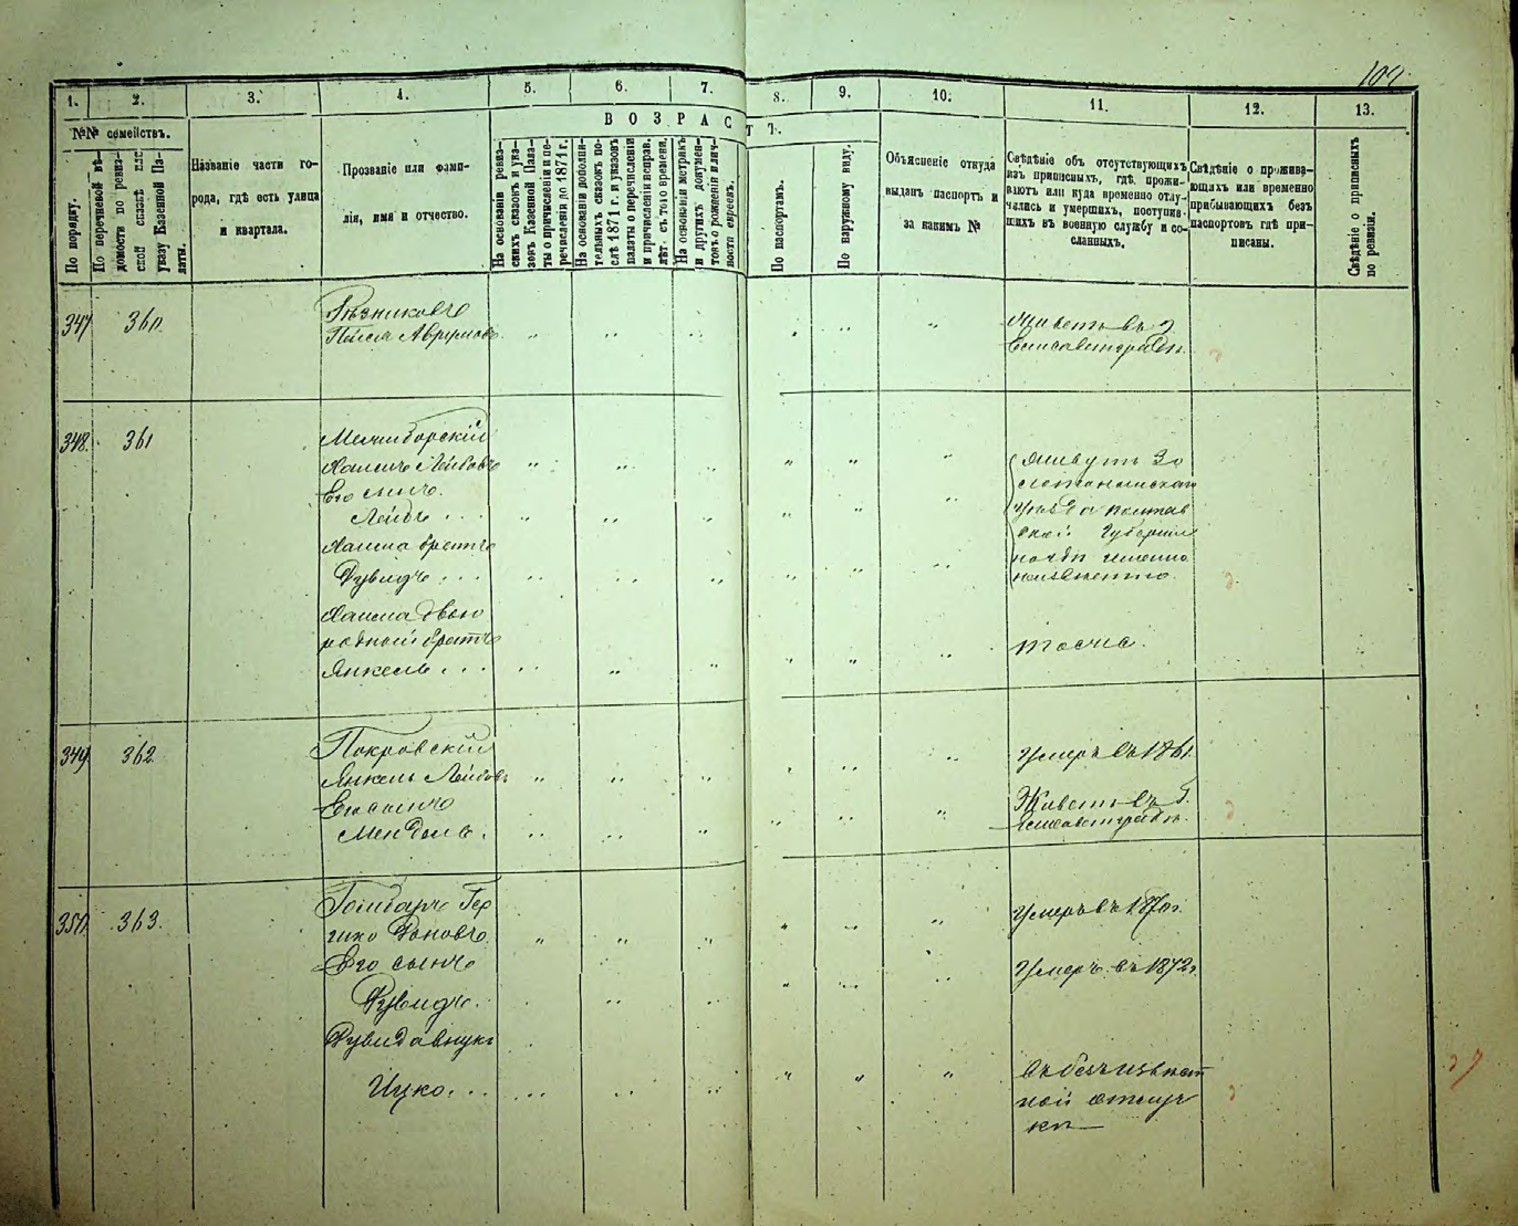 109
1. 2. 3. 4. 5. 6. 7. 8. 9. 10. 11. 12. 13.
№№ семействъ.
По порядку.
По перечневой вѣ-
домости по ревиз-
ской сказкѣ или
указу Казенной Па-
латы.
Названіе части го-
рода, гдѣ есть улица
и квартала.
Прозваніе или фами-
лія, имя и отчество.
ВОЗРАСТЪ.
На основаніи ревиз-
скихъ сказокъ и ука-
зовъ Казенной Пала-
ты о причисленіи и пе-
речисленіи до 1871 г.
На основаніи дополни-
тельныхъ сказокъ по-
слѣ 1871 г. и указовъ
палаты о перечисленіи
и причисленіи исправ.
лѣт. съ того времени.
На основаніи метрикъ
и другихъ докумен-
товъ о рожденіи и лич-
ности евреевъ.
По паспортамъ.
По наружному виду.
Объясненіе откуда
выданъ паспортъ и
за какимъ №
Свѣдѣніе объ отсутствующихъ
изъ приписныхъ, гдѣ прожи-
ваютъ или куда временно отлу-
чались и умершихъ, поступив-
шихъ въ военную службу и со-
сланныхъ.
Свѣдѣніе о прожива-
ющихъ или временно
прибывающихъ безъ
паспортовъ гдѣ при-
писаны.
Свѣдѣніе о приписныхъ
по ревизіи.
347 360 Рѣзниковъ
Пейся Аврумовъ
Живетъ въ г.
Елисаветградѣ.
348. 361
Хаимъ Лейбовъ
Его сынъ.
Лейбъ
Хаима братъ
Рувидъ
Хаима двою
родный братъ
Янкель
Живутъ
уѣзда Полтав
ской Губерніи
но гдѣ именно
неизвестно.
тоже.
349 362 Покровскій
Янкель Лейбовъ
Умеръ въ 1861.
Его сынъ
Мендель.
Живетъ въ г.
Елисаветградѣ.
350 363. Гер
шко
Умеръ въ 1870 г.
Его сынъ
Рувидъ.
Умеръ въ 1872 г.
Рувида внукъ
Ицко
въ безъизвѣст
ной отлуч
кѣ